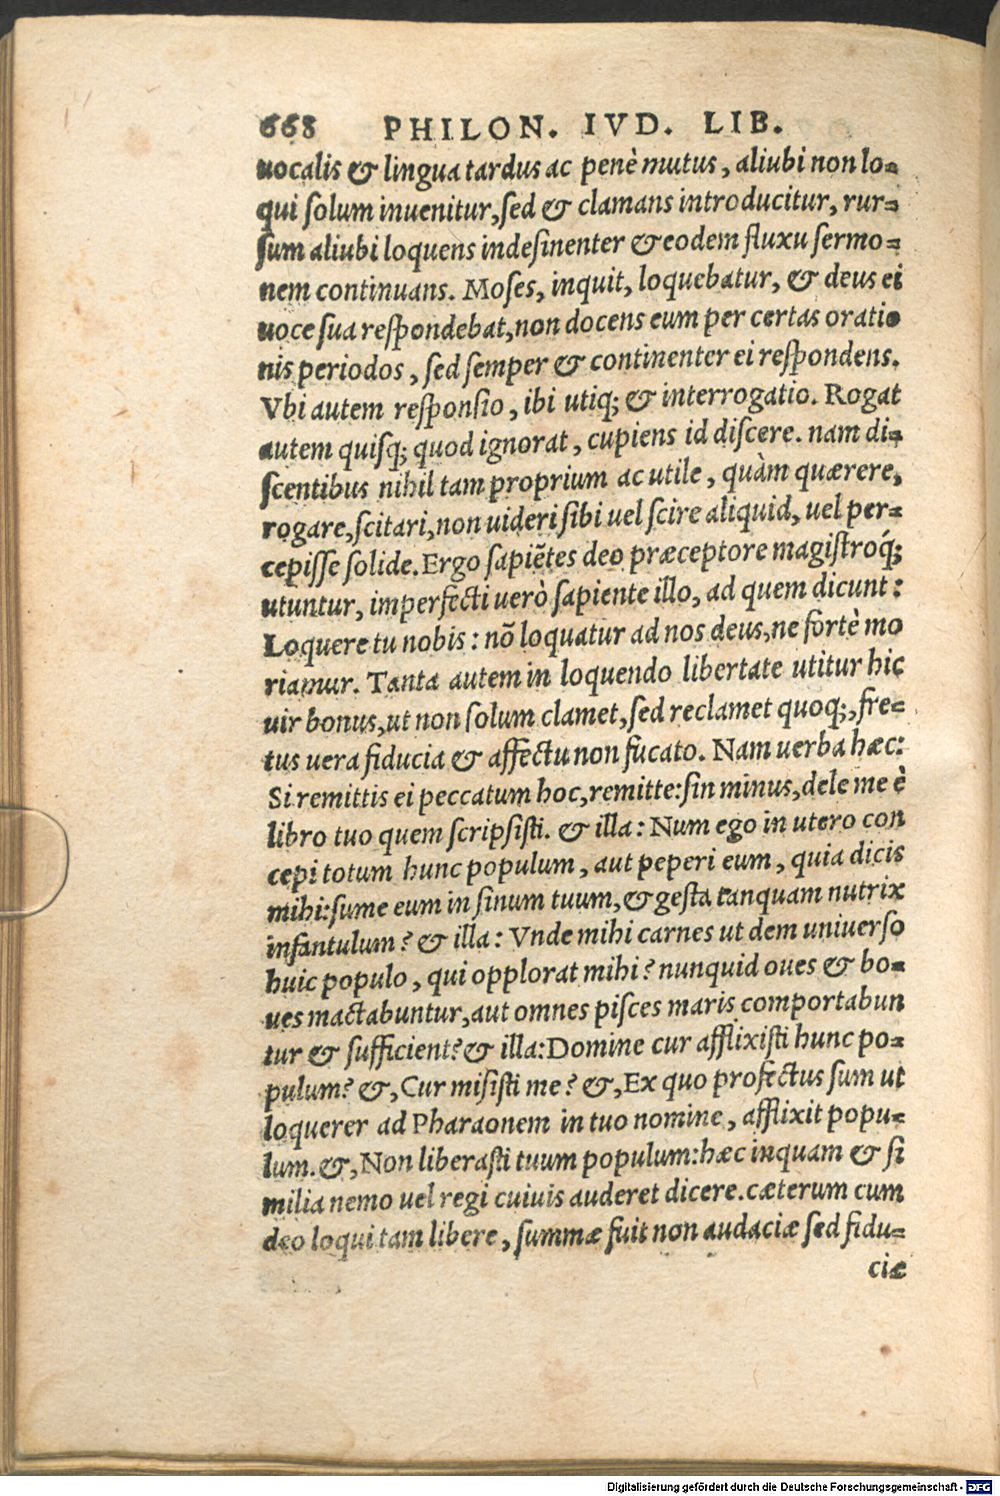 668 PHILON. IVD. LIB.
uocalis & lingua tardus ac penè mutus, aliubi non lo=
qui solum inuenitur, sed & clamans introducitur, rur=
sum aliubi loquens indesinenter & eodem fluxu sermo=
nem continuans. Moses, inquit, loquebatur, & deus ei
uoce sua respondebat, non docens eum per certas oratio
nis periodos, sed semper & continenter ei respondens.
Vbi autem responsio, ibi utiq; & interrogatio. Rogat
autem quisq; quod ignorat, cupiens id discere. nam di=
scentibus nihil tam proprium ac utile, quàm quærere,
rogare, scitari, non uideri sibi uel scire aliquid, uel per=
cepisse solide. Ergo sapiẽtes deo præceptore magistroq́;
utuntur, imperfecti uerò sapiente illo, ad quem dicunt:
Loquere tu nobis: nõ loquatur ad nos deus, ne fortè mo
riamur. Tanta autem in loquendo libertate utitur hic
uir bonus, ut non solum clamet, sed reclamet quoq;, fre=
tus uera fiducia & affectu non fucato. Nam uerba hæc:
Si remittis ei peccatum hoc, remitte: sin minus, dele me è
libro tuo quem scripsisti. & illa: Num ego in utero con
cepi totum hunc populum, aut peperi eum, quia dicis
mihi: sume eum in sinum tuum, & gesta tanquam nutrix
infantulum? & illa: Vnde mihi carnes ut dem uniuerso
huic populo, qui opplorat mihi? nunquid oues & bo=
ues mactabuntur, aut omnes pisces maris comportabun
tur & sufficient? & illa: Domine cur afflixisti hunc po=
pulum? &, Cur misisti me? &, Ex quo profectus sum ut
loquerer ad Pharaonem in tuo nomine, afflixit popu=
lum. &, Non liberasti tuum populum: hæc inquam & si
milia nemo uel regi cuiuis auderet dicere. cæterum cum
deo loqui tam libere, summæ fuit non audaciæ sed fidu=
ciæ
Digitalisierung gefördert durch die Deutsche Forschungsgemeinschaft - DFG